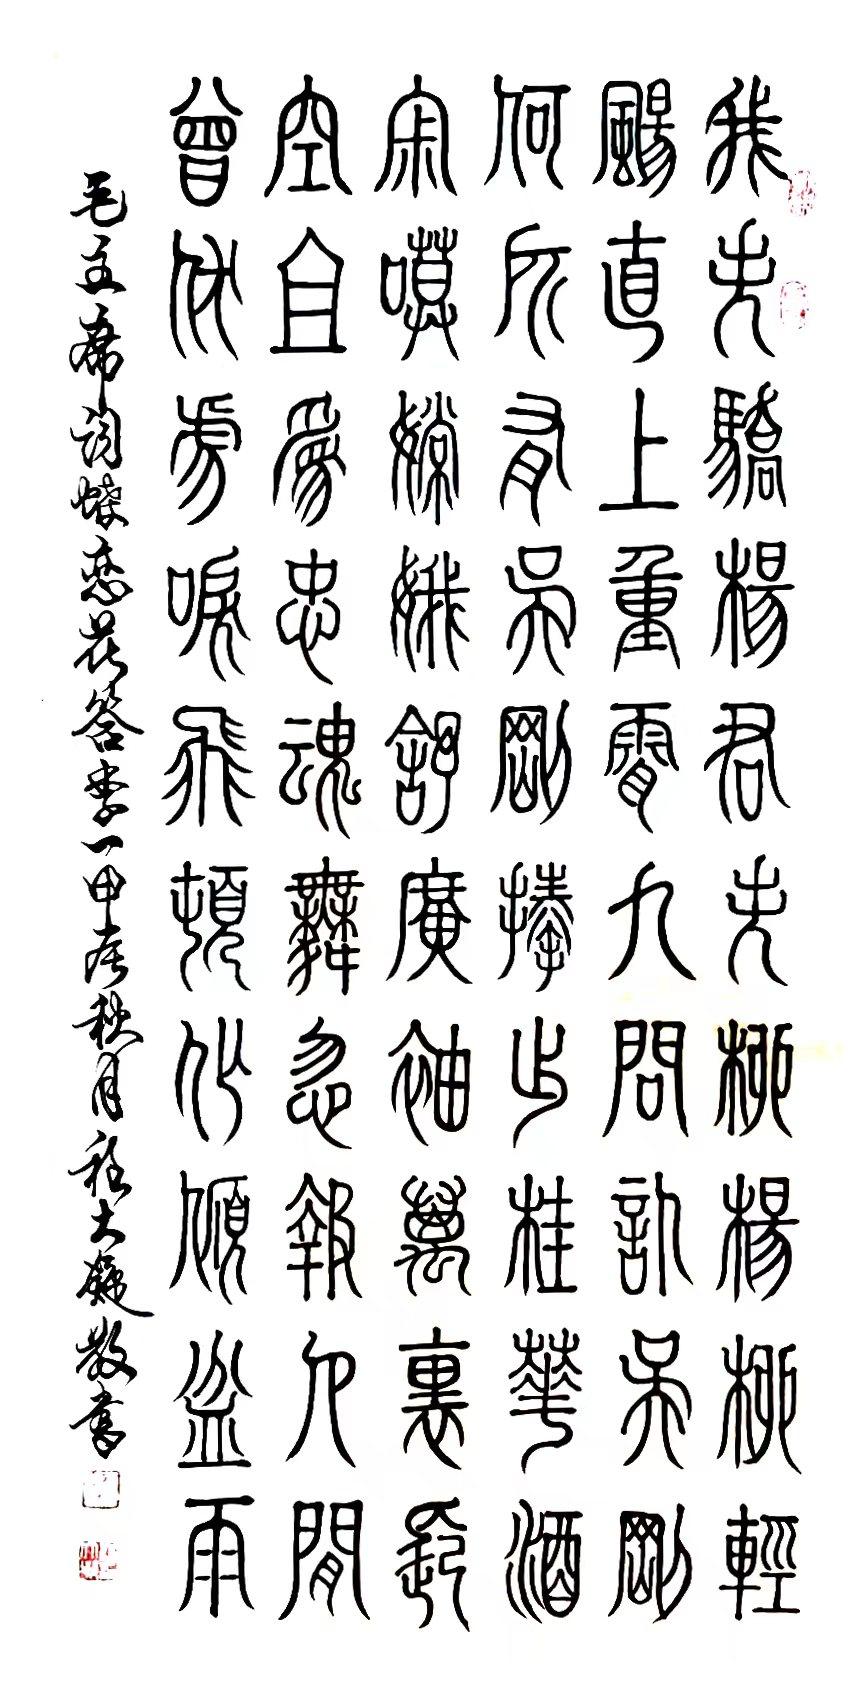 我失驕楊君失柳楊柳輕
颺直上重霄九問訊吳剛
何所有吳剛捧出桂華酒
寂嗼嫦娥舒廣袖萬裏長
空且為忠魂舞忽報人閒
曾伏虎唳飛頓作傾盆雨
毛主席詞蝶恋花答李一甲辰秋月程大敬書